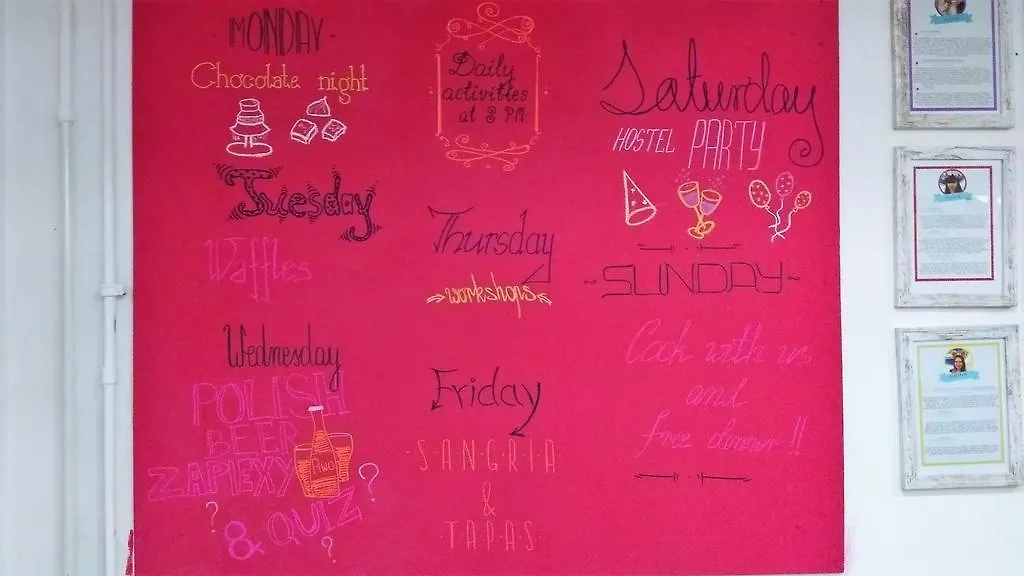 MONDAY
Chocolate night
Tuesday
Waffles
Wednesday
POLISH
BEER
ZAPIEXY
& QUIZ
Piwo
Daily
activities
at 8 PM
Thursday
workshops
Friday
SANGRIA
&
TAPAS
Saturday
HOSTEL PARTY
SUNDAY
Cook with us
and
free dinner !!